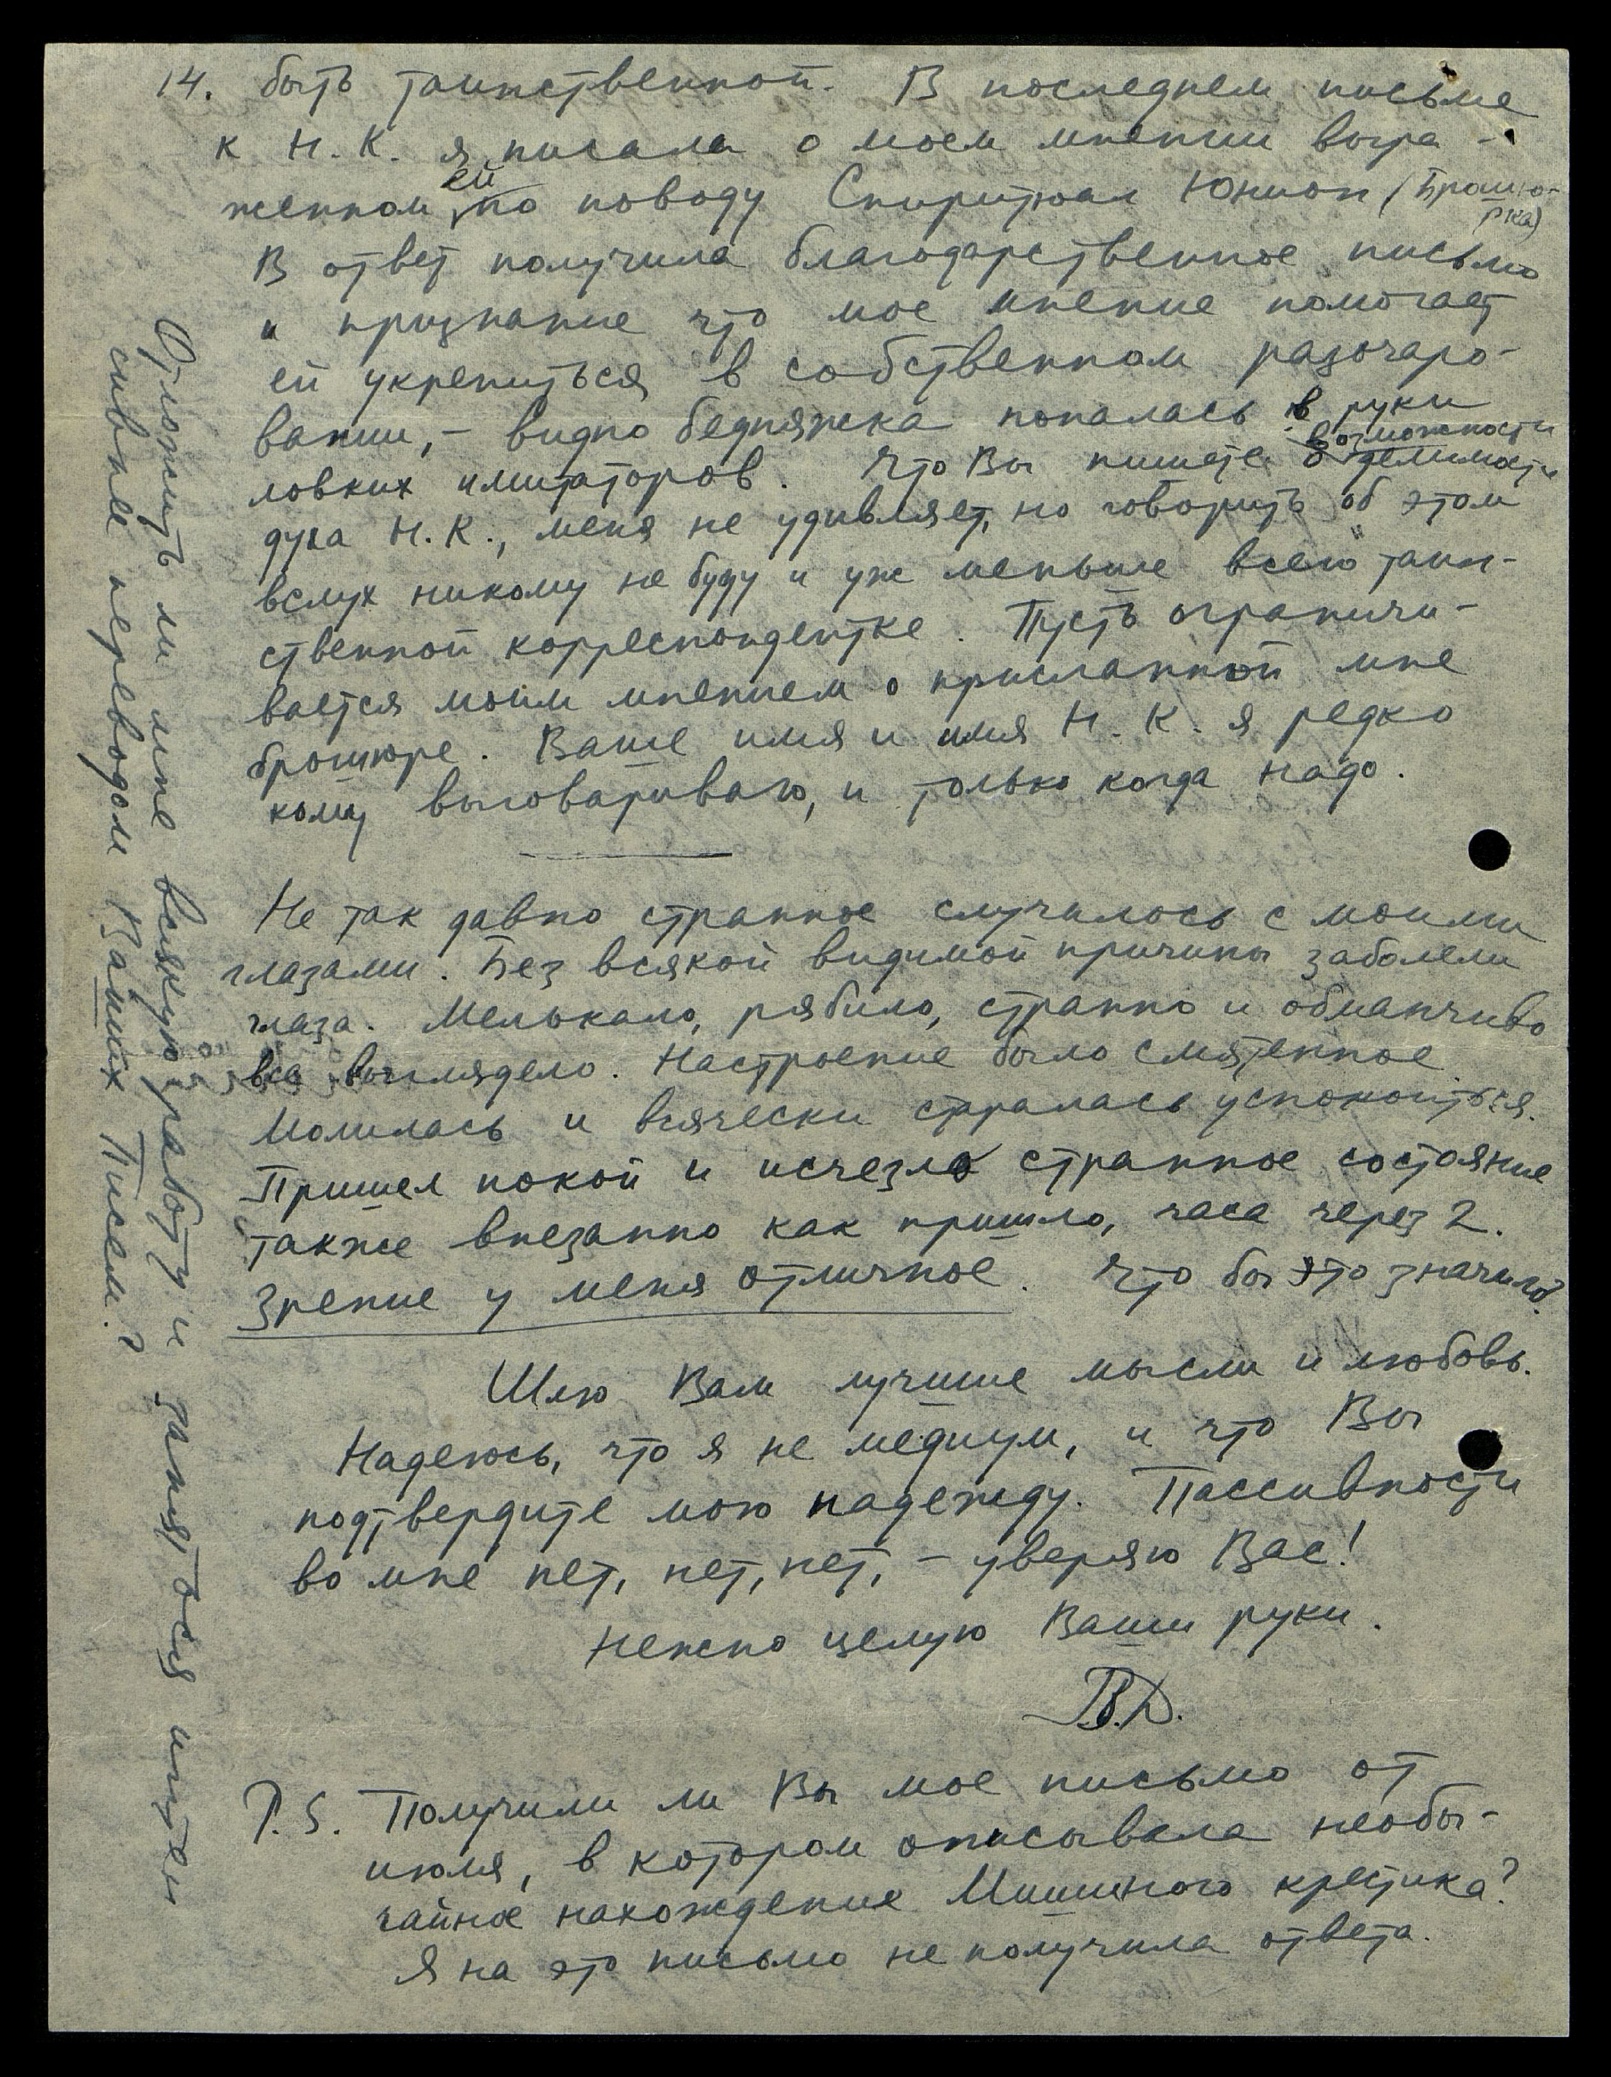 14. быть таинственной. В последнем письме
к Н.К. я писала о моем мнении выра-
женном ей по поводу Спиритюал Юнион (Брошю-
рка)
В ответ получила благодарственное письмо
и признание что мое мнение помогает
ей укрепиться в собственном разочаро-
вании, – видно бедняжка попалась в руки
ловких имитаторов. Что Вы пишете о возможности делимости
духа Н.К., меня не удивляет, но говорить об этом
вслух никому не буду и уж меньше всего таин-
ственной корреспондентке. Пусть ограничи-
вается моим мнением о присланной мне
брошюре. Ваше имя и имя Н.К. я редко
кому выговариваю, и только когда надо.
Не так давно странное случилось с моими
глазами. Без всякой видимой причины заболели
глаза. Мелькало, рябило, странно и обманчиво
все выглядело. Настроение было смятенное.
Молилась и всячески старалась успокоиться.
Пришел покой и исчезло странное состояние
также внезапно как пришло, часа через 2.
Зрение у меня отличное. Что бы это значило?
Шлю Вам лучшие мысли и любовь.
Надеюсь, что я не медиум, и что Вы
подтвердите мою надежду. Пассивности
во мне нет, нет, нет, – уверяю Вас!
Нежно целую Ваши руки.
В.Д.
P.S. Получили ли Вы мое письмо от
июля, в котором описывала необы-
чайное нахождение Мишиного крестика?
Я на это письмо не получила ответа.
Отложить ли мне всякую работу и заняться интен
сивнее переводом Ваших Писем?